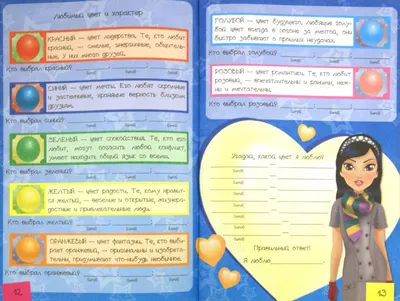 Любимый цвет и характер
КРАСНЫЙ — цвет лидерства. Те, кто любит
красный, — смелые, энергичные, общитель-
ные. У них много друзей.
Кто выбрал красный?
СИНИЙ — цвет мечты. Его любят скромные
и застенчивые, хранящие верность близким
друзьям.
Кто выбрал синий?
ЗЕЛЕНЫЙ — цвет спокойствия. Те, кто его
любит, могут погасить любой конфликт,
умеют находить общий язык со всеми.
Кто выбрал зеленый?
ЖЕЛТЫЙ — цвет радости. Те, кому нравит-
ся желтый, — веселые и открытые, жизнера-
достные и привлекательные люди.
Кто выбрал желтый?
ОРАНЖЕВЫЙ — цвет фантазии. Те, кто выби-
рает оранжевый, — оригинальны и изобрета-
тельны, придумывают что-нибудь необычное.
Кто выбрал оранжевый?
12
ГОЛУБОЙ — цвет будущего. Любящие голу-
бой цвет всегда в погоне за мечтой, они
быстро забывают о прошлых неудачах.
Кто выбрал голубой?
РОЗОВЫЙ — цвет романтики. Те, кто любит
розовый, — впечатлительны и ранимы, неж-
ны и мечтательны.
Кто выбрал розовый?
Угадай, какой цвет я люблю?
Правильный ответ!
Я люблю
13